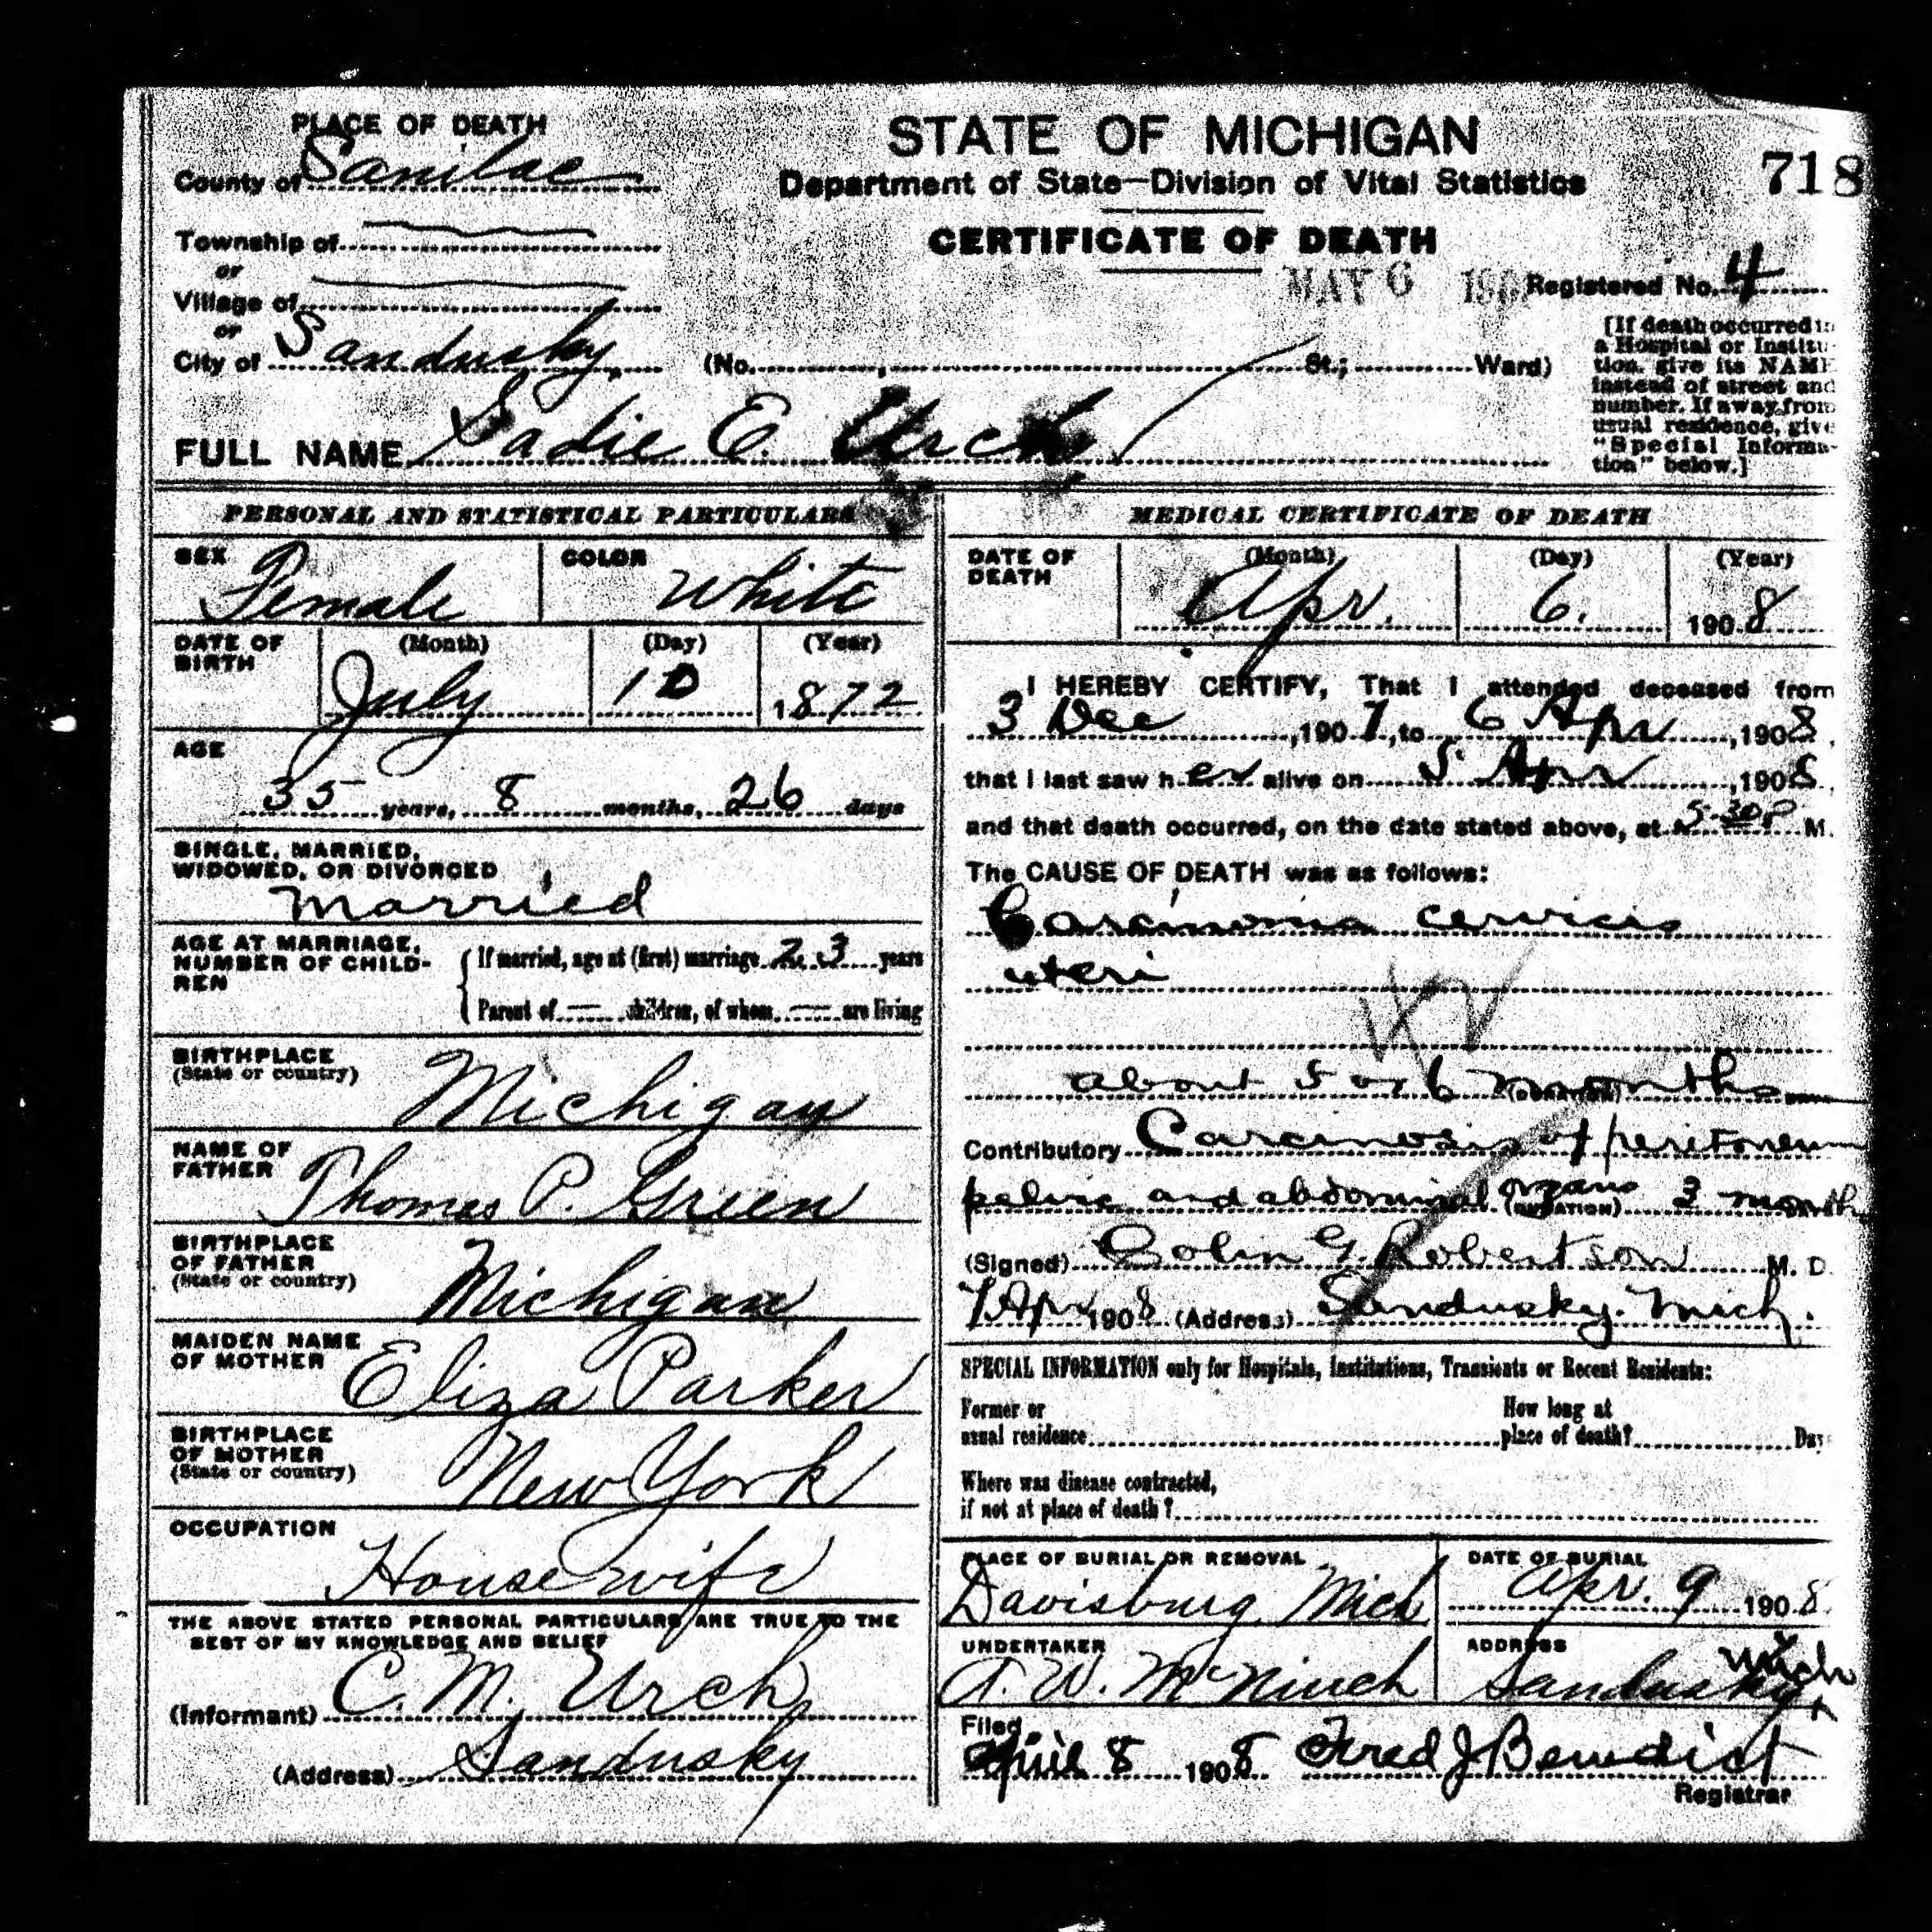 PLACE OF DEATH
County of Sanilac
Township of
or
Village of
or
City of Sandusky
STATE OF MICHIGAN
Department of State—Division of Vital Statistics
718
CERTIFICATE OF DEATH
MAY 6 190
Registered No. 4
(No. , St.; Ward)
[If death occurred in
a Hospital or Institu-
tion, give its NAME
instead of street and
number. If away from
usual residence, give
"Special Informa-
tion" below.]
FULL NAME Sadie E. Urch
PERSONAL AND STATISTICAL PARTICULARS
SEX Female
COLOR White
DATE OF BIRTH
(Month) (Day) (Year)
July 10 1872
AGE
35 years, 8 months, 26 days
SINGLE, MARRIED,
WIDOWED, OR DIVORCED
Married
AGE AT MARRIAGE,
NUMBER OF CHILD-
REN
If married, age at (first) marriage 23 years
Parent of — children, of whom — are living
BIRTHPLACE
(State or country)
Michigan
NAME OF
FATHER
Thomas P. Green
BIRTHPLACE
OF FATHER
(State or country)
Michigan
MAIDEN NAME
OF MOTHER
Eliza Parker
BIRTHPLACE
OF MOTHER
(State or country)
New York
OCCUPATION
Housewife
THE ABOVE STATED PERSONAL PARTICULARS ARE TRUE TO THE
BEST OF MY KNOWLEDGE AND BELIEF
(Informant) C. M. Urch,
(Address) Sandusky
MEDICAL CERTIFICATE OF DEATH
DATE OF
DEATH
(Month) (Day) (Year)
Apr. 6. 1908
I HEREBY CERTIFY, That I attended deceased from
3 Dec, 1907, to 6 Apr, 1908,
that I last saw her alive on 5 Apr, 1908,
and that death occurred, on the date stated above, at 5-30 P M.
The CAUSE OF DEATH was as follows:
Carcinoma cervicis
uteri
about 5 or 6 months
(DURATION)
Contributory Carcinosis of peritoneum
pelvic and abdominal organs 3 month
(DURATION)
(Signed) Colin G. Robertson M. D.
7 Apr 1908 (Address) Sandusky. Mich.
SPECIAL INFORMATION only for Hospitals, Institutions, Transients or Recent Residents:
Former or
usual residence
How long at
place of death? Days
Where was disease contracted,
if not at place of death?
PLACE OF BURIAL OR REMOVAL
Davisburg Mich
DATE OF BURIAL
Apr. 9 1908
UNDERTAKER
A. W. McNinch
ADDRESS
Sandusky Mich
Filed
April 8 1908 Fred J Benedict
Registrar